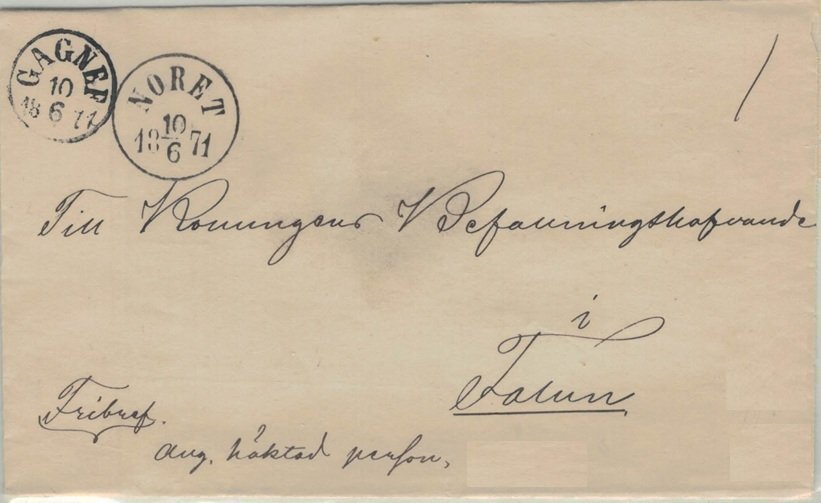 GAGNEF
10
18 6 71
NORET
10
18 6 71
Till Konungens Befallningshafvande
i
Falun
Fribref.
ang. häktad person,